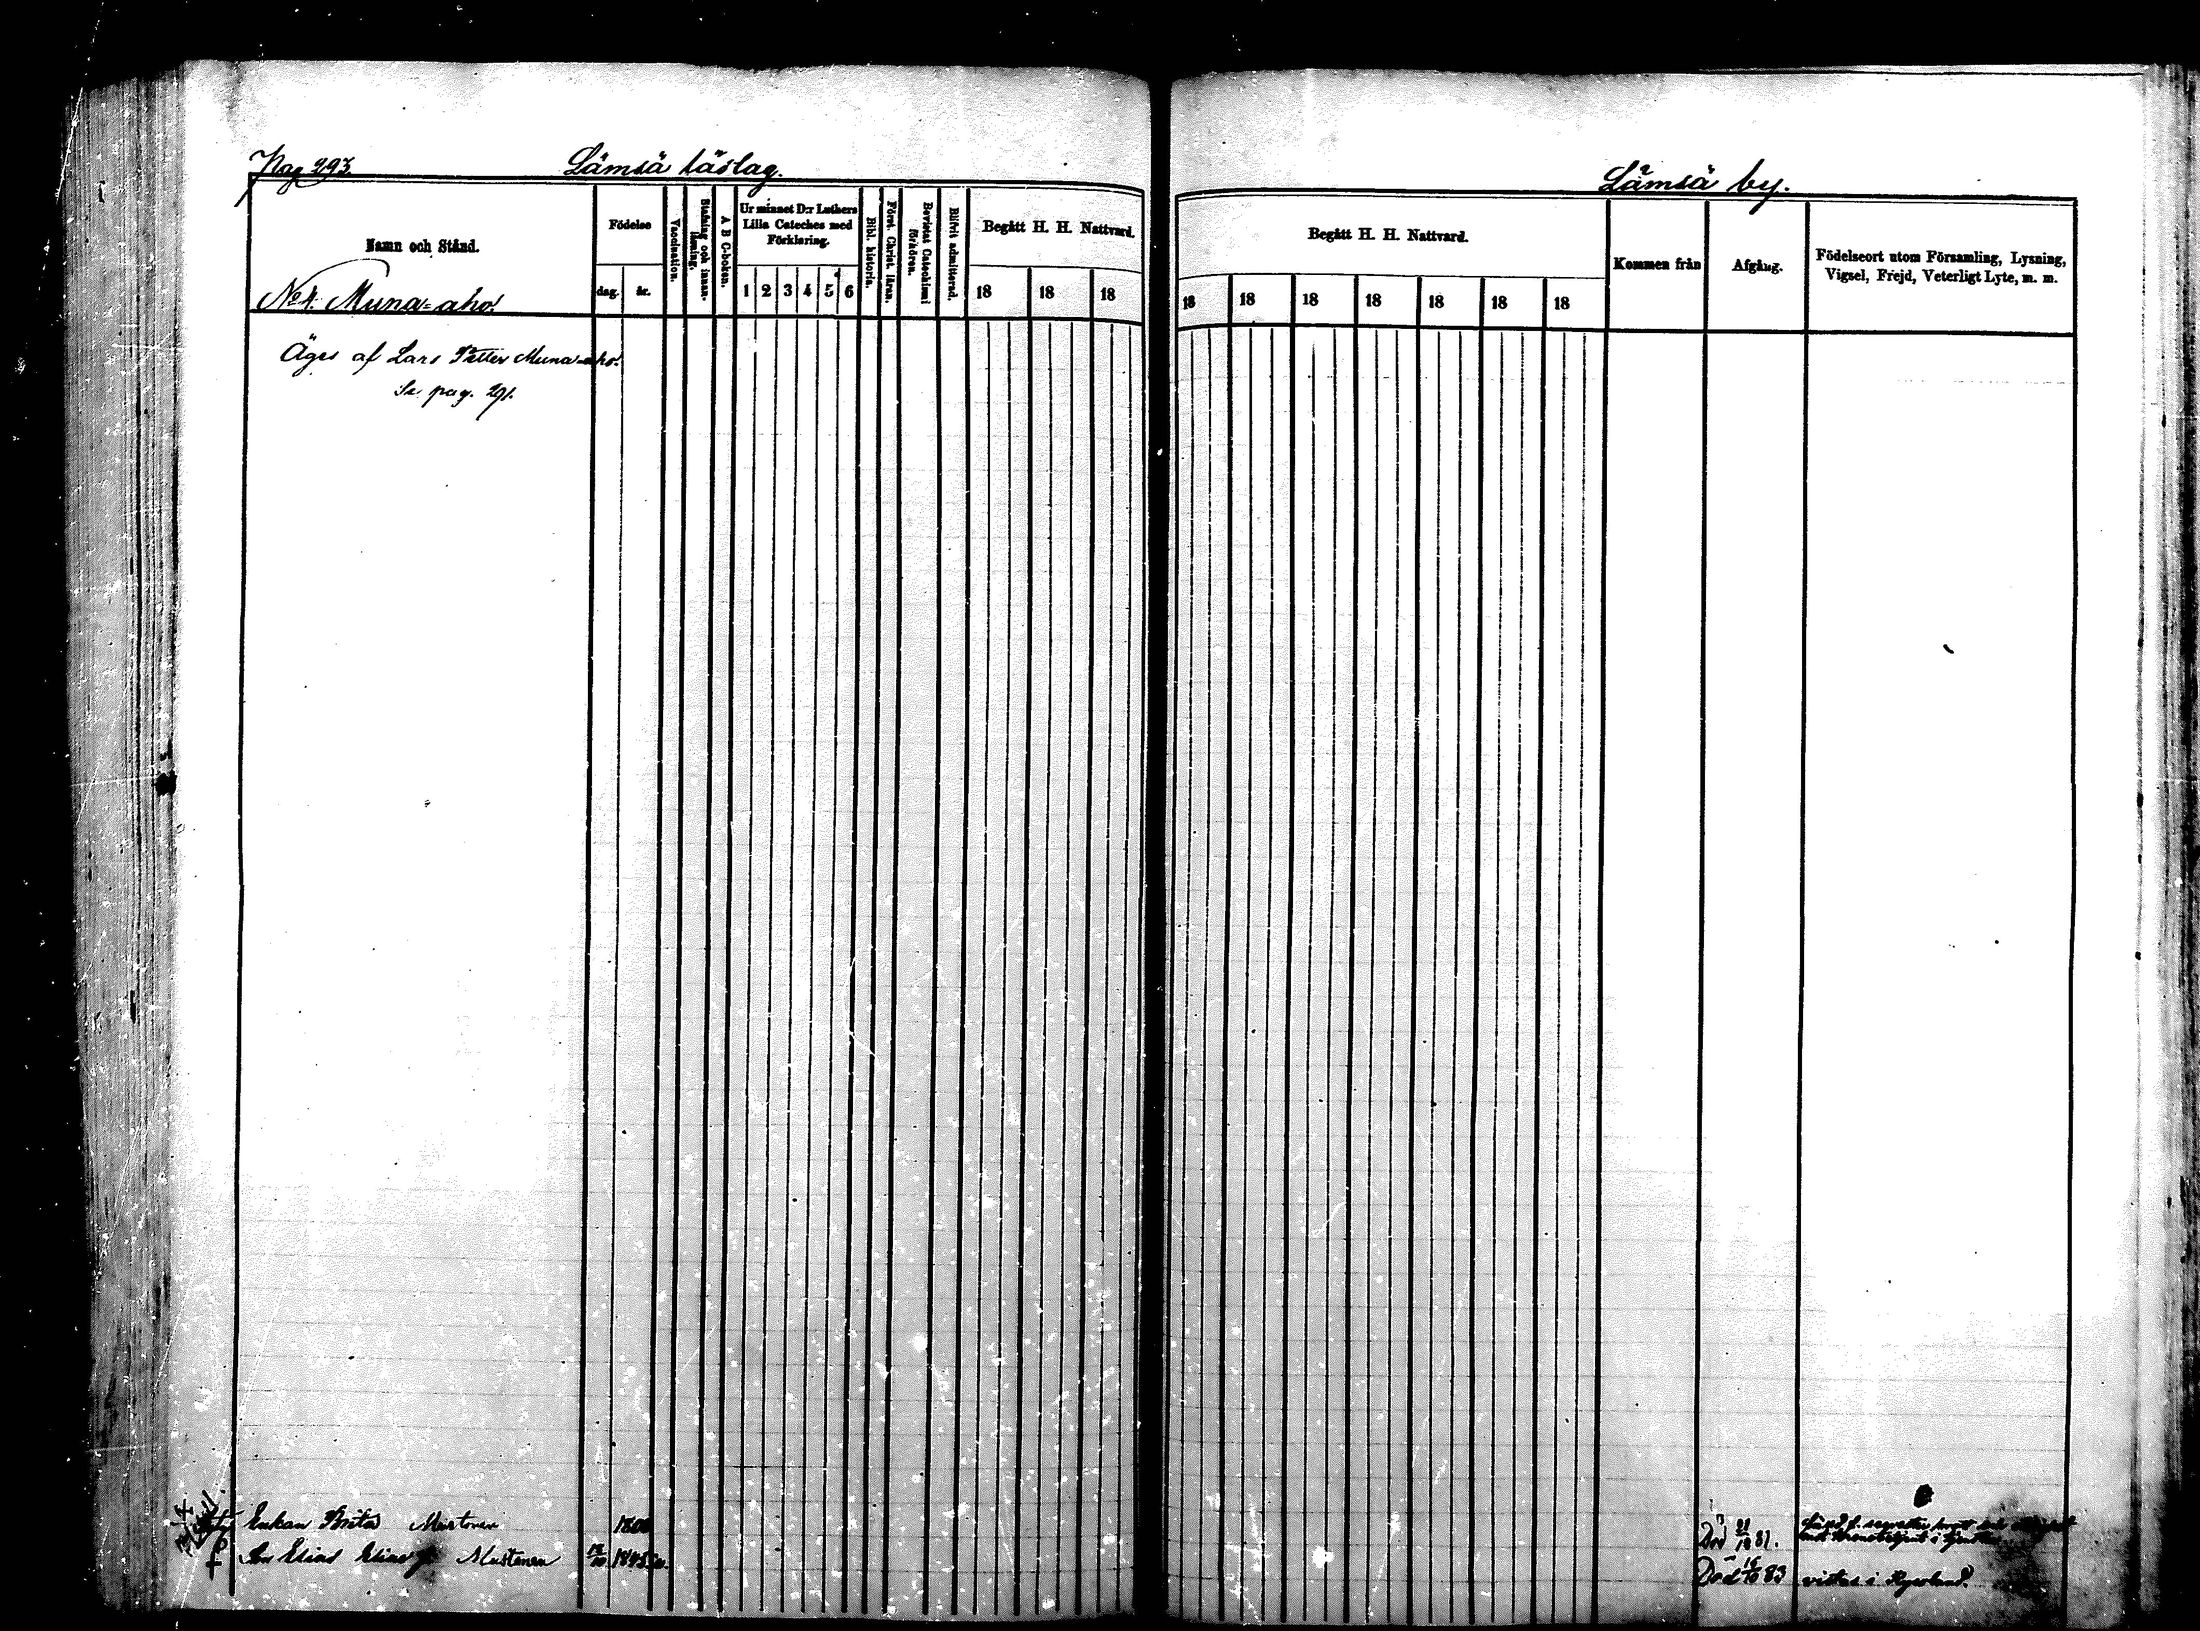 Pag 293.
Lämsä läslag.
Lämsä by.
Namn och Stånd.
Födelse
dag. år.
Vaccination.
Stafning och innan-
läsning.
A B C-boken.
Ur minnet D:r Luthers
Lilla Cateches med
Förklaring.
1 2 3 4 5 6
Bibl. historia.
Först. Christ. läran.
Bevistat Catechismi
förhören.
Blifvit admitterad.
Begått H. H. Nattvard.
18 18 18
Begått H. H. Nattvard.
18 18 18 18 18 18 18
Kommen från
Afgång.
Födelseort utom Församling, Lysning,
Vigsel, Frejd, Veterligt Lyte, m. m.
No 4. Muna=aho.
Äges af Lars Petter Muna-aho.
Se pag. 291.
Enkan Brita Mustonen
Död 81.
Son Elias Mustonen
Död 83 vistas i Ryssland.